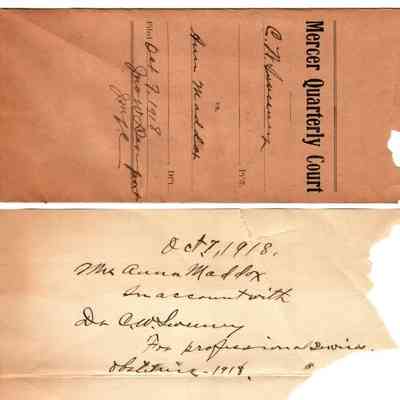 Mercer Quarterly Court
C. W. Sweeney
Pltf.
vs.
Ann Maddox
Dft.
Filed Oct 7, 1918
Judge
Oct 7, 1918.
Mrs Anna Maddox
In account with
Dr C. W. Sweeney
For professional
Obstetrics - 1918